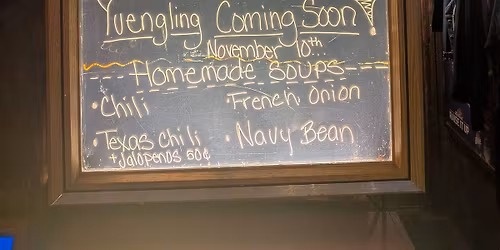 Yuengling Coming Soon
November 10th
Homemade Soups
• Chili • French Onion
• Texas Chili • Navy Bean
+Jalopenos 50¢